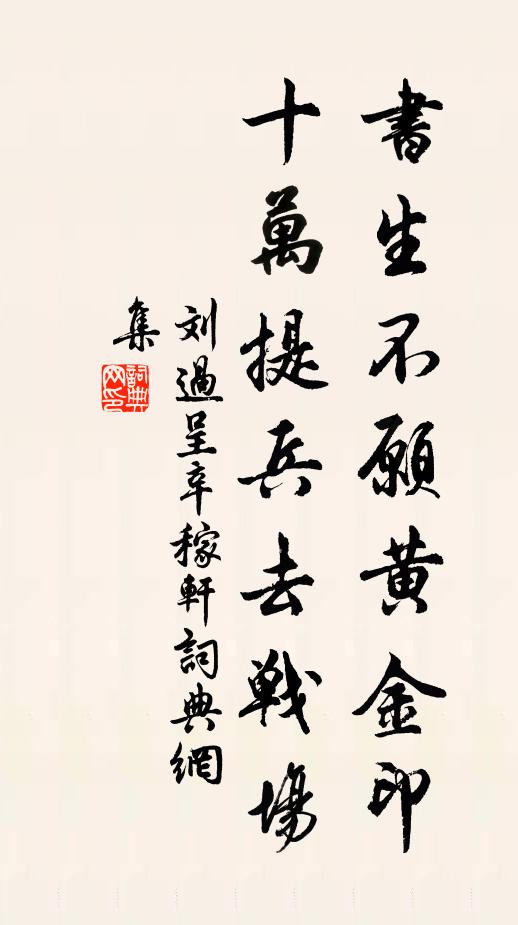 書生不願黄金印
十萬提兵去戰場
刘過呈辛稼軒詞典網
集
詞典網印